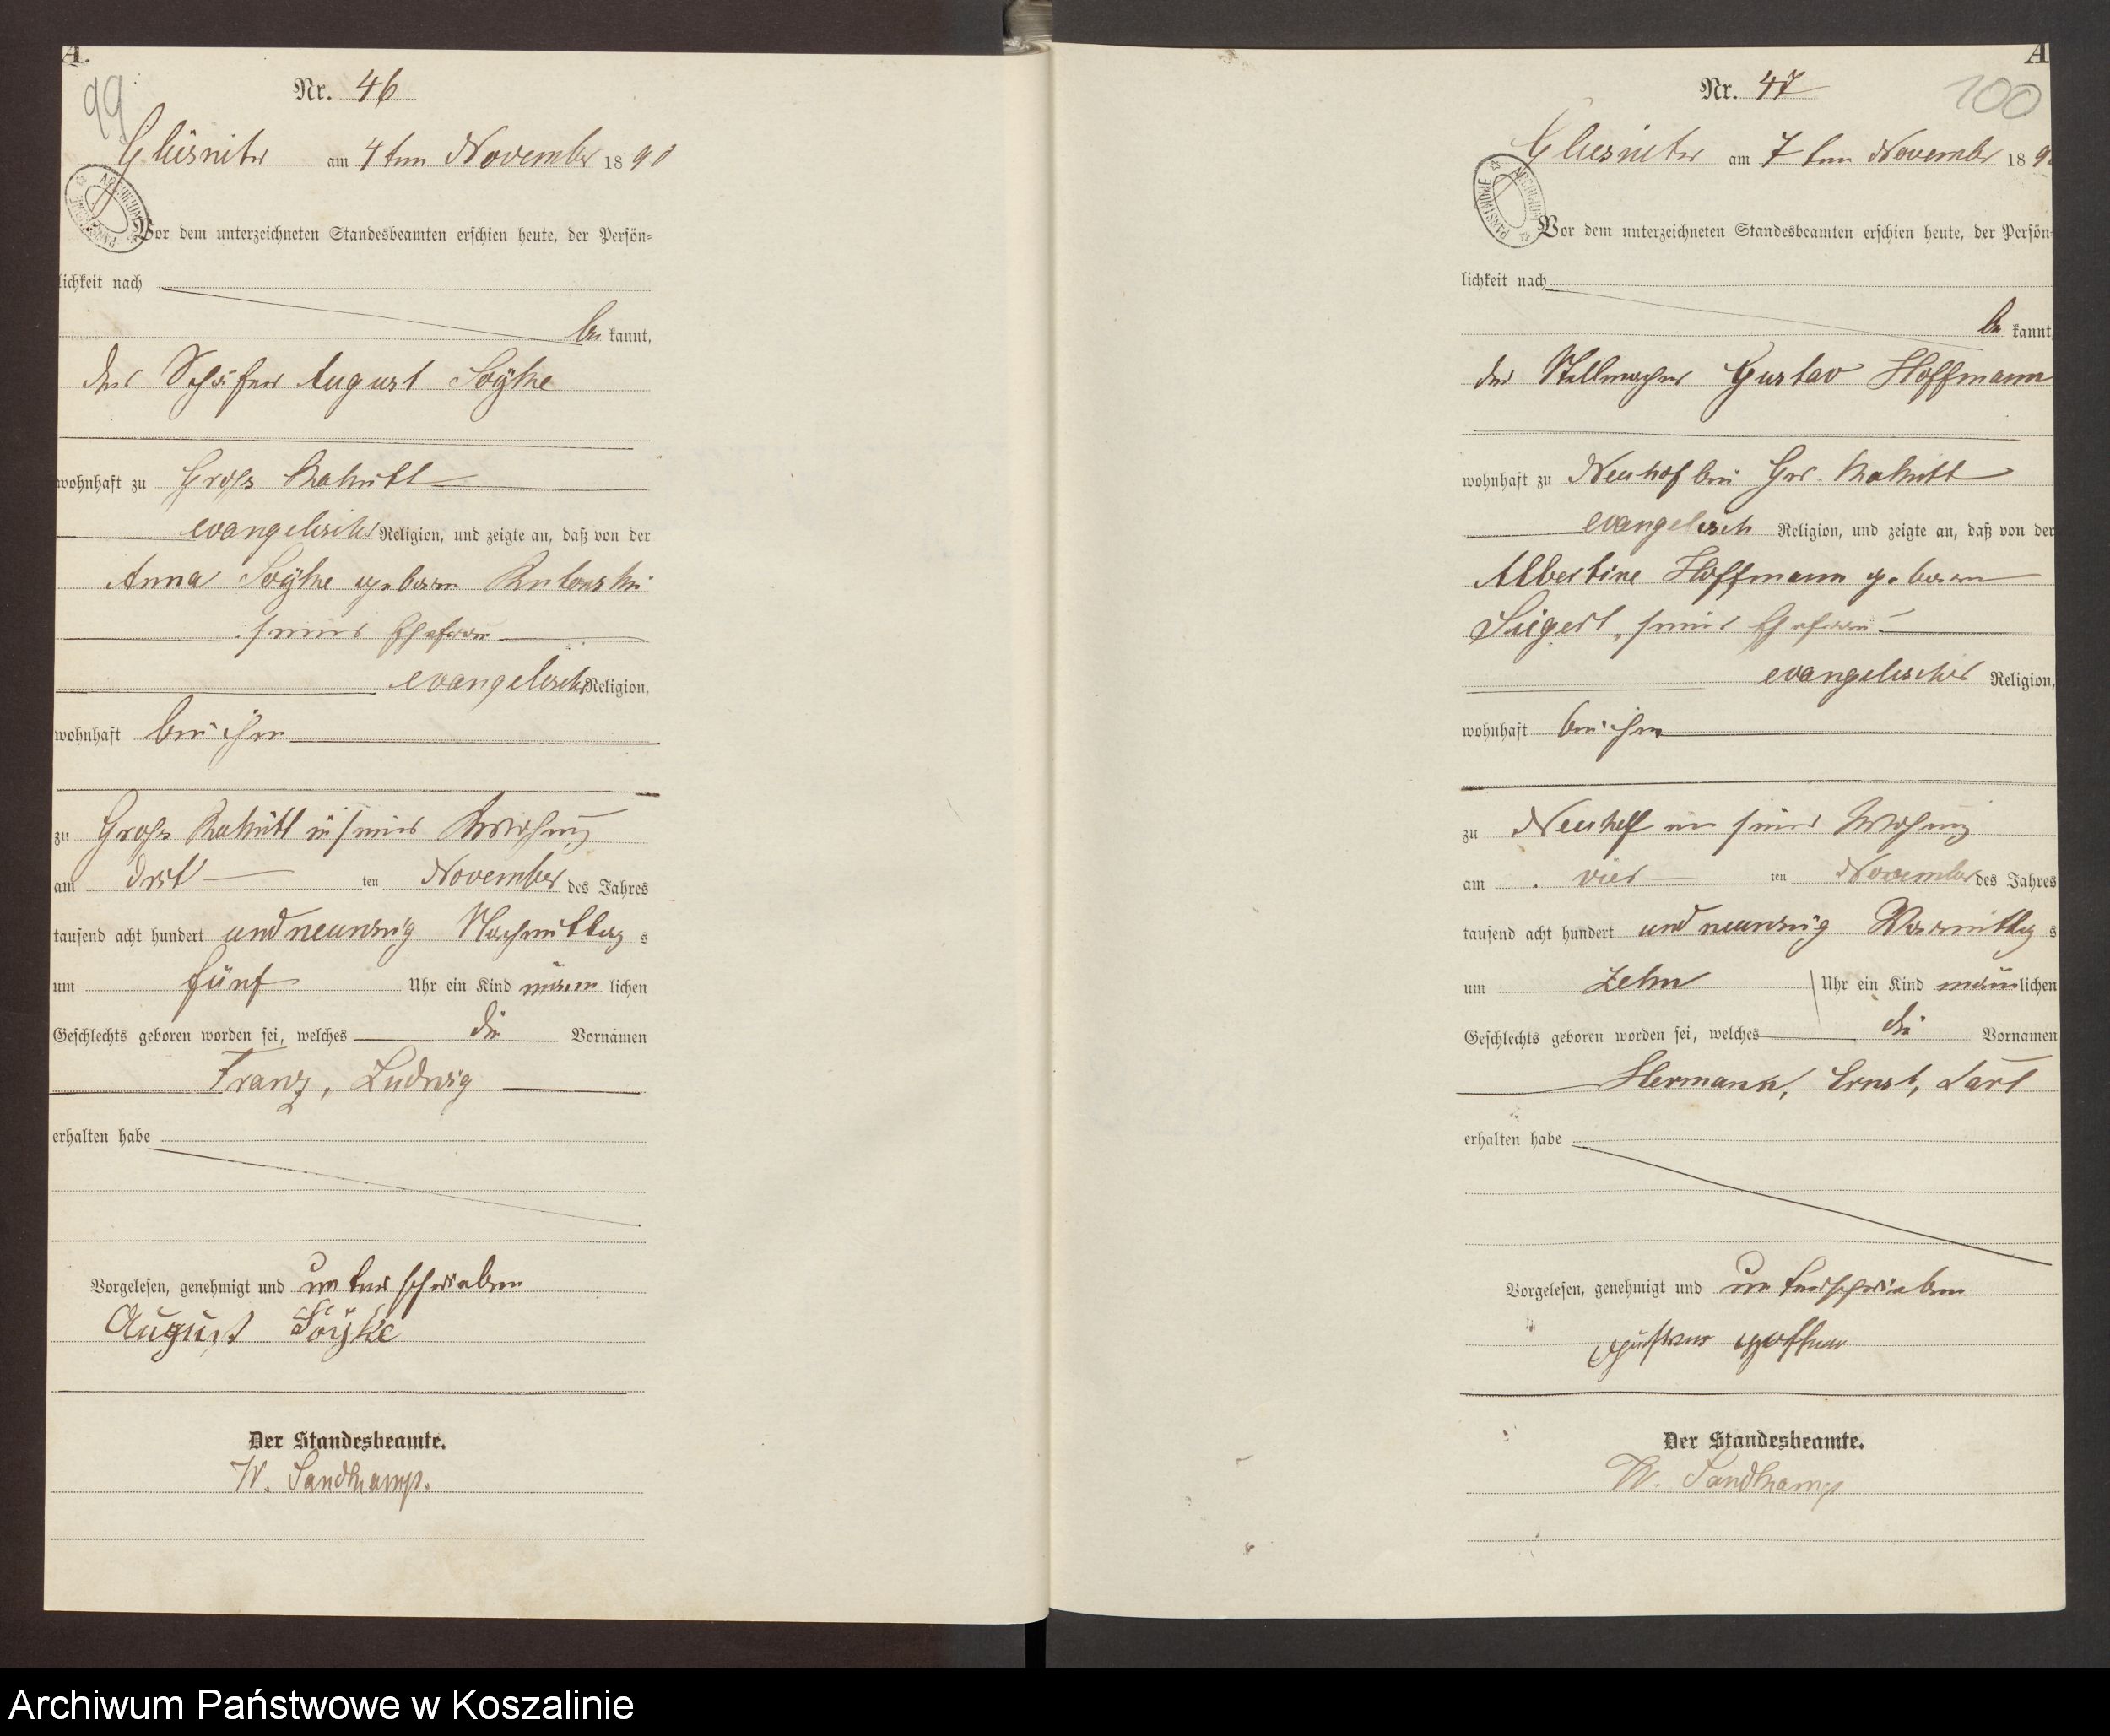 A.
99
Nr. 46
Glüsnitz am 4ten November 1890
ARCHIWUM PAŃSTWOWE
Vor dem unterzeichneten Standesbeamten erschien heute, der Persön=
lichkeit nach
be kannt,
der Schäfer August Söyke
wohnhaft zu Gross Rakitt
evangelischer Religion, und zeigte an, daß von der
Anna Söyke geboren
seiner Ehefrau
evangelischer Religion,
wohnhaft bei ihm
zu Gross Rakitt in seiner Wohnung
am drit ten November des Jahres
tausend acht hundert und neunzig Nachmittag s
um fünf Uhr ein Kind männ lichen
Geschlechts geboren worden sei, welches die Vornamen
Franz, Ludwig
erhalten habe
Vorgelesen, genehmigt und unterschrieben
August Söyke
Der Standesbeamte.
W. Sandkamp.
A
100
Nr. 47
Glusnitz am 7ten November 1890
ARCHIWUM PAŃSTWOWE
Vor dem unterzeichneten Standesbeamten erschien heute, der Persön=
lichkeit nach
be kannt,
der Stellmacher Gustav Hoffmann
wohnhaft zu Neuhof bei Gr. Rakitt
evangelisch Religion, und zeigte an, daß von der
Albertine Hoffmann geboren
Siegert, seiner Ehefrau
evangelischer Religion,
wohnhaft bei ihm
zu Neuhof in seiner Wohnung
am vier ten November des Jahres
tausend acht hundert und neunzig Vormittag s
um zehn Uhr ein Kind männlichen
Geschlechts geboren worden sei, welches die Vornamen
Hermann, Ernst, Carl
erhalten habe
Vorgelesen, genehmigt und unterschrieben
Gustav Hoffman
Der Standesbeamte.
W. Sandkamp
Archiwum Państwowe w Koszalinie